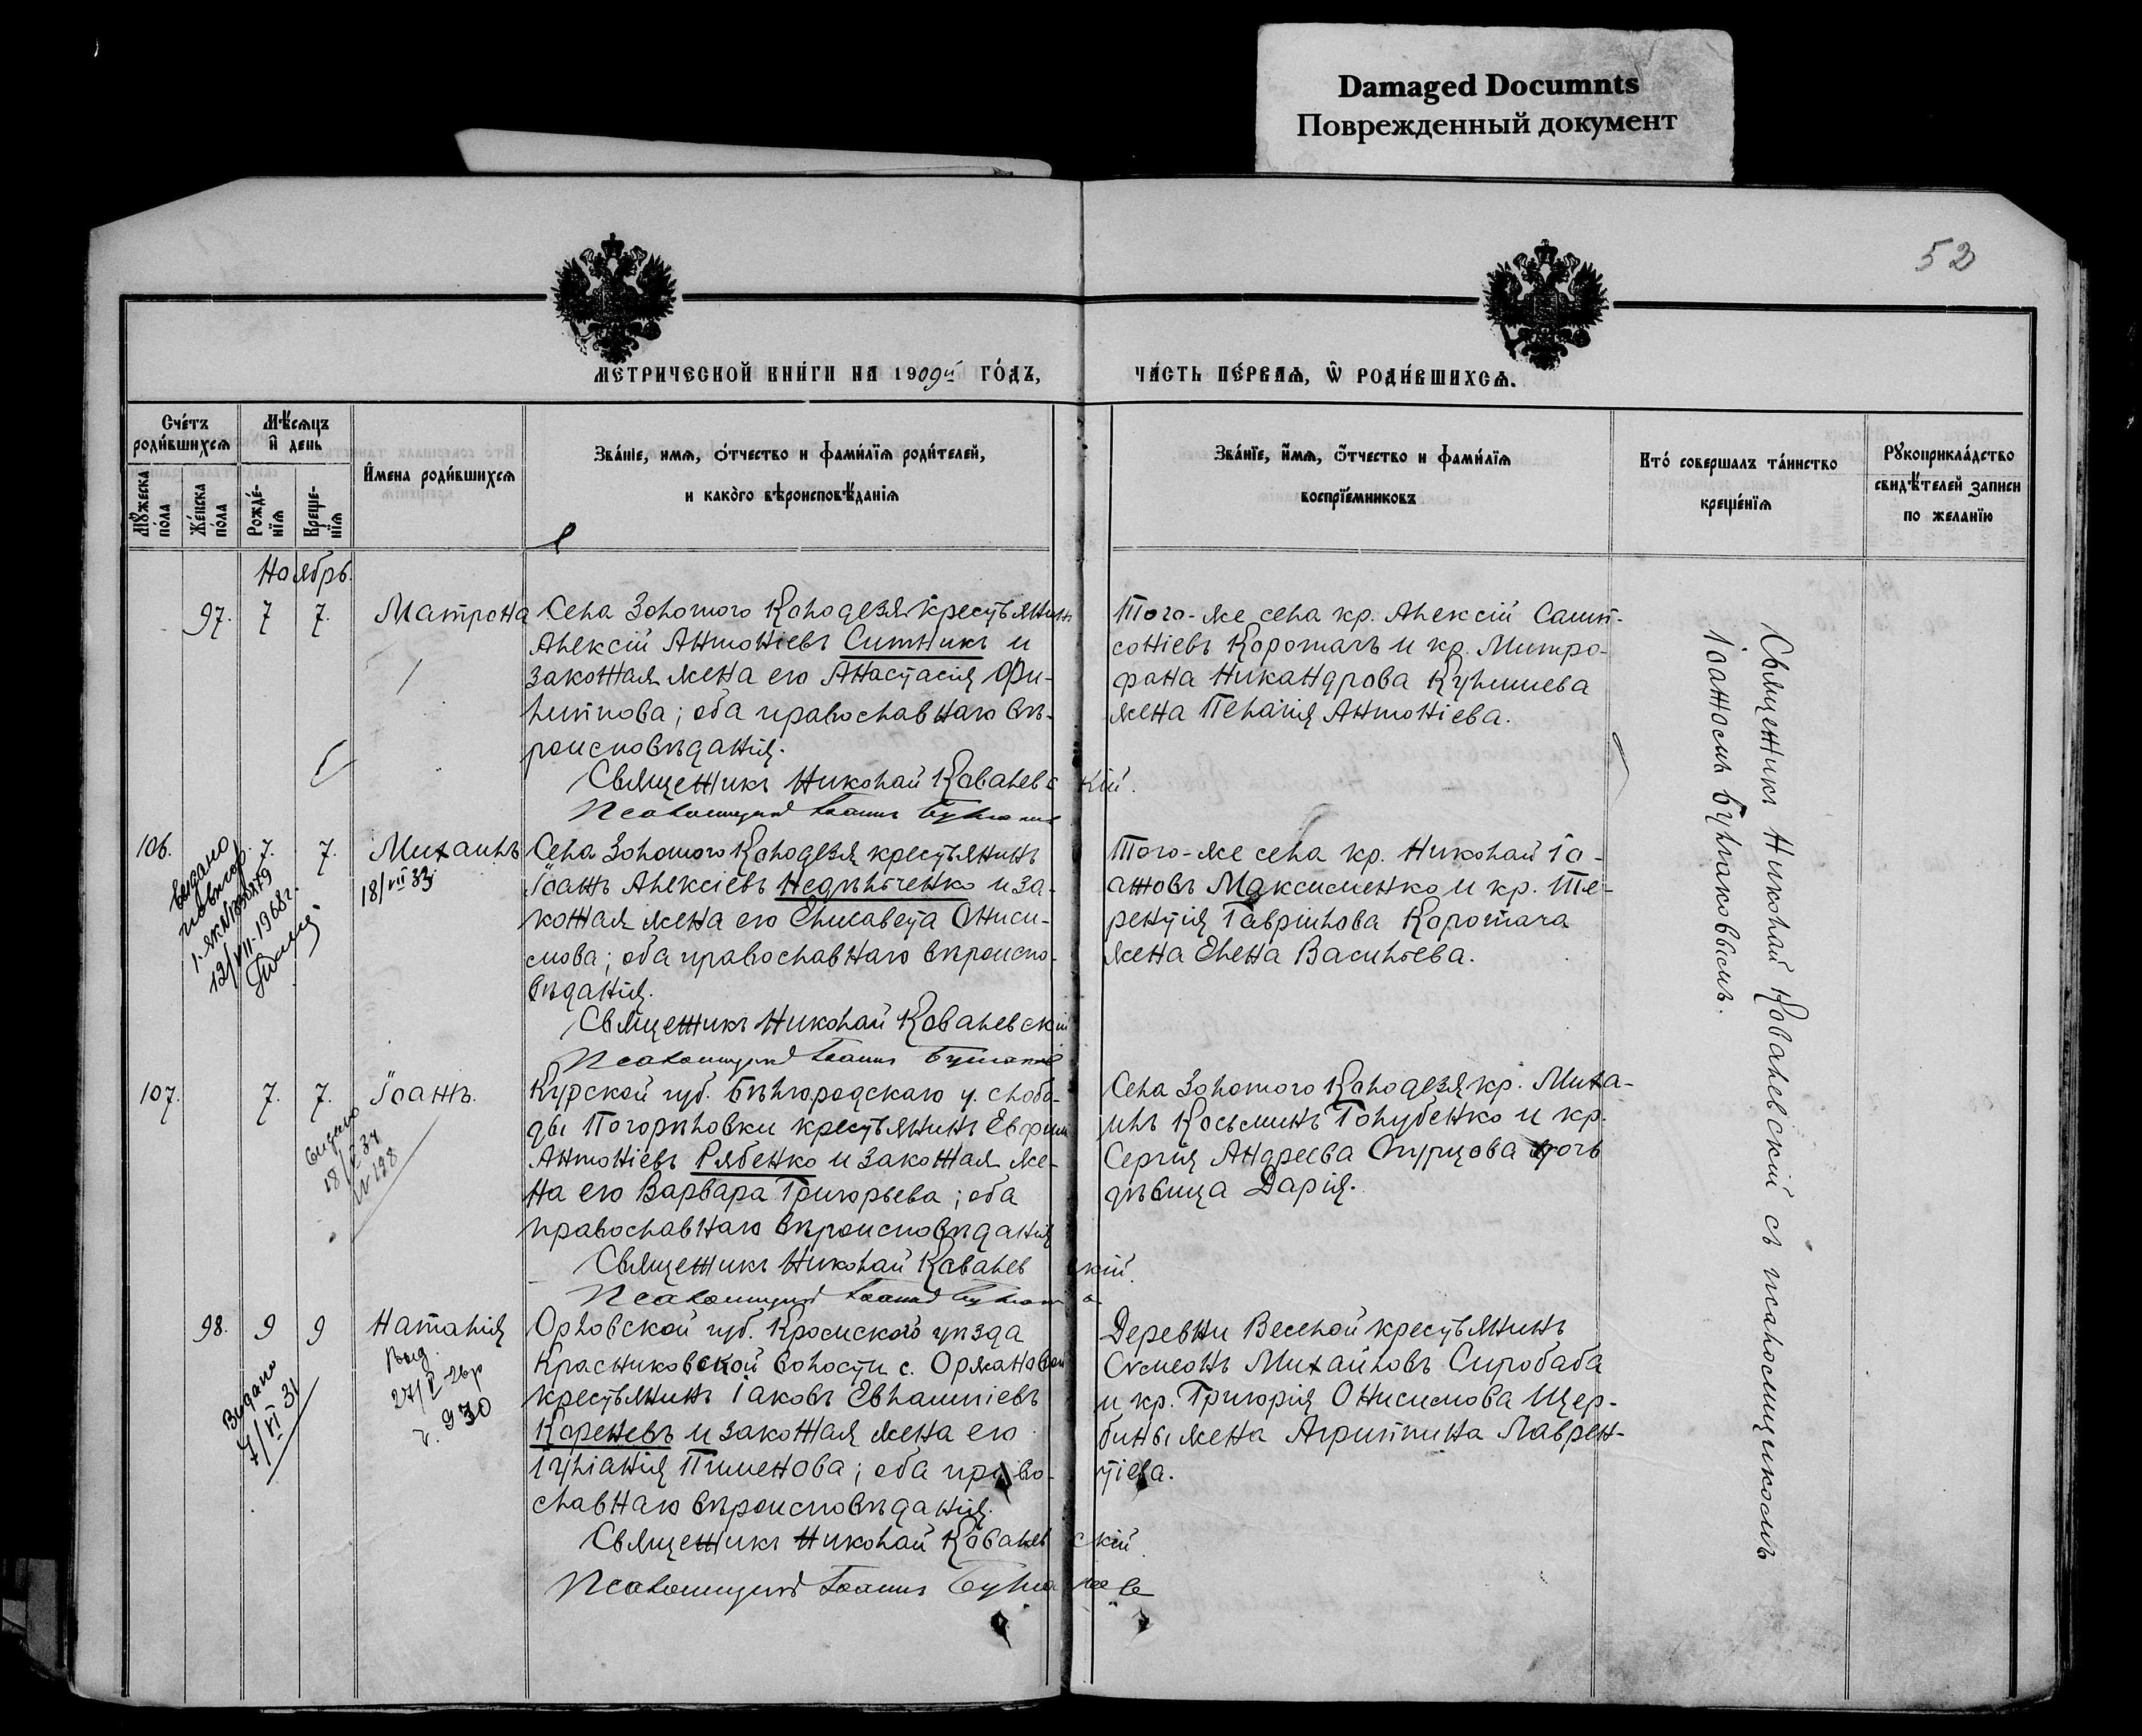 Damaged Documnts
Поврежденный документ
52
МЕТРИЧЕСКОЙ КНИ́ГИ НА 1909й ГО́ДЪ,
ЧА́СТЬ ПЕ́РВАѦ, Ѿ РОДИ́ВШИХСѦ.
Сче́тъ родившихсѧ
Мѣсѧцъ и день
Мꙋжеска по́ла
Же́нска по́ла
Рожде́нїѧ
Креще́нїѧ
И́мена роди́вшихсѧ
Зва́нїе, имѧ, о́тчество и фами́лїѧ роди́телей,
и како́го вѣроисповѣ́данїѧ
Зва́нїе, и́мѧ, о́тчество и фами́лїѧ
воспрїе́мниковъ
Кто́ совершалъ та́инство
креще́нїѧ
Рꙋкоприкла́дство
свидѣ́телей записи
по желанїю
Ноябрь.
97. 7 7. Матрона
Села Золотого Колодезя крестьянинъ
Алексій Антоніевъ Ситникъ и
законная жена его Анастасія Фи-
липпова; оба православнаго вѣ-
роисповѣданія.
Священникъ Николай Ковалевскій.
Псаломщикъ Іоаннъ Булгаковъ
Того-же села кр. Алексій Самп-
соніевъ Коротачъ и кр. Митро-
фана Никандрова Кулишева
жена Пелагія Антоніева.
106. 7. 7. Михаилъ
18/VII 33
Выдано
повтор.
12/VII-1968г.
Села Золотого Колодезя крестьянинъ
Іоаннъ Алексіевъ Недѣльченко и за-
конная жена его Елисавета Ониси-
мова; оба православнаго вѣроиспо-
вѣданія.
Священникъ Николай Ковалевскій
Псаломщикъ Іоаннъ Булгаковъ
Того-же села кр. Николай Іо-
анновъ Максименко и кр. Те-
рентія Гаврилова Коротача
жена Елена Васильева.
107. 7. 7. Іоаннъ.
Видано
N 198
Курской губ. Бѣлгородскаго у. слобо-
ды Погорѣловки крестьянинъ Евфим
Антоніевъ Рябенко и законная же-
на его Варвара Григорьева; оба
православнаго вѣроисповѣданія
Священникъ Николай Ковалевскій.
Псаломщикъ Іоаннъ Булгаков
Села Золотого Колодезя кр. Миха-
илъ Косьминъ Голубенко и кр.
Сергія Андреева Огурцова дочь
дѣвица Дарія.
98. 9 9 Наталія
Видано
7/VI 31
Выд.
27/V-26р
ч. 930
Орловской губ. Кромского уѣзда
Красниковской волости с. Оржановой
крестьянинъ Іаковъ Евлампіевъ
Кореневъ и законная жена его
Іуліанія Пименова; оба право-
славнаго вѣроисповѣданія.
Священникъ Николай Ковалевскій.
Псаломщикъ Іоаннъ Булгаковъ
Деревни Веселой крестьянинъ
Сѵмеонъ Михайловъ Сиробаба
и кр. Григорія Онисимова Щер-
бины жена Агриппина Лаврен-
тіева.
Священникъ Николай Ковалевскій съ псаломщикомъ
Іоанномъ Булгаковымъ.